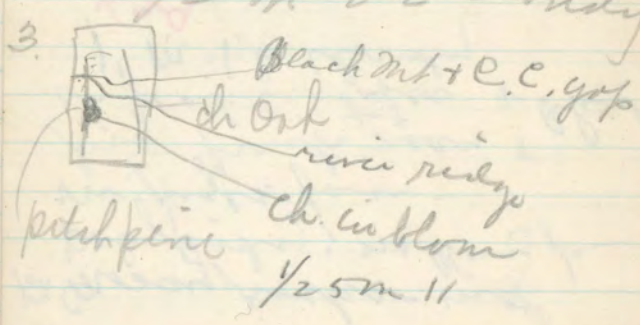 3.
Black Mt + C. C. gap
ch Oak
river ridge
ch. in bloom
pitch pine
1/25 m 11